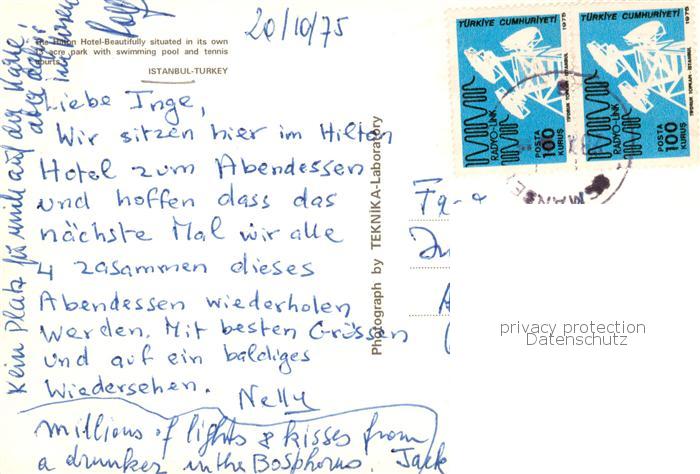 20/10/75
The Hilton Hotel-Beautifully situated in its own
acre park with swimming pool and tennis
courts.
ISTANBUL-TURKEY
Liebe Inge,
Wir sitzen hier im Hilton
Hotel zum Abendessen
und hoffen dass das
nächste Mal wir alle
4 zusammen dieses
Abendessen wiederholen
werden. Mit besten Grüssen
und auf ein baldiges
Wiedersehen.
Nelly
millions of lights & kisses from
a drunker in the Bosphorus. Jack
Kein Platz für mich auf der Karte
aber
Photograph by TEKNIKA-Laboratory
TÜRKİYE CUMHURİYETİ
1975
RADYO-LİNK
POSTA
100
KURUŞ
TÜRKİYE CUMHURİYETİ
1975
RADYO-LİNK
POSTA
100
KURUŞ
privacy protection
Datenschutz